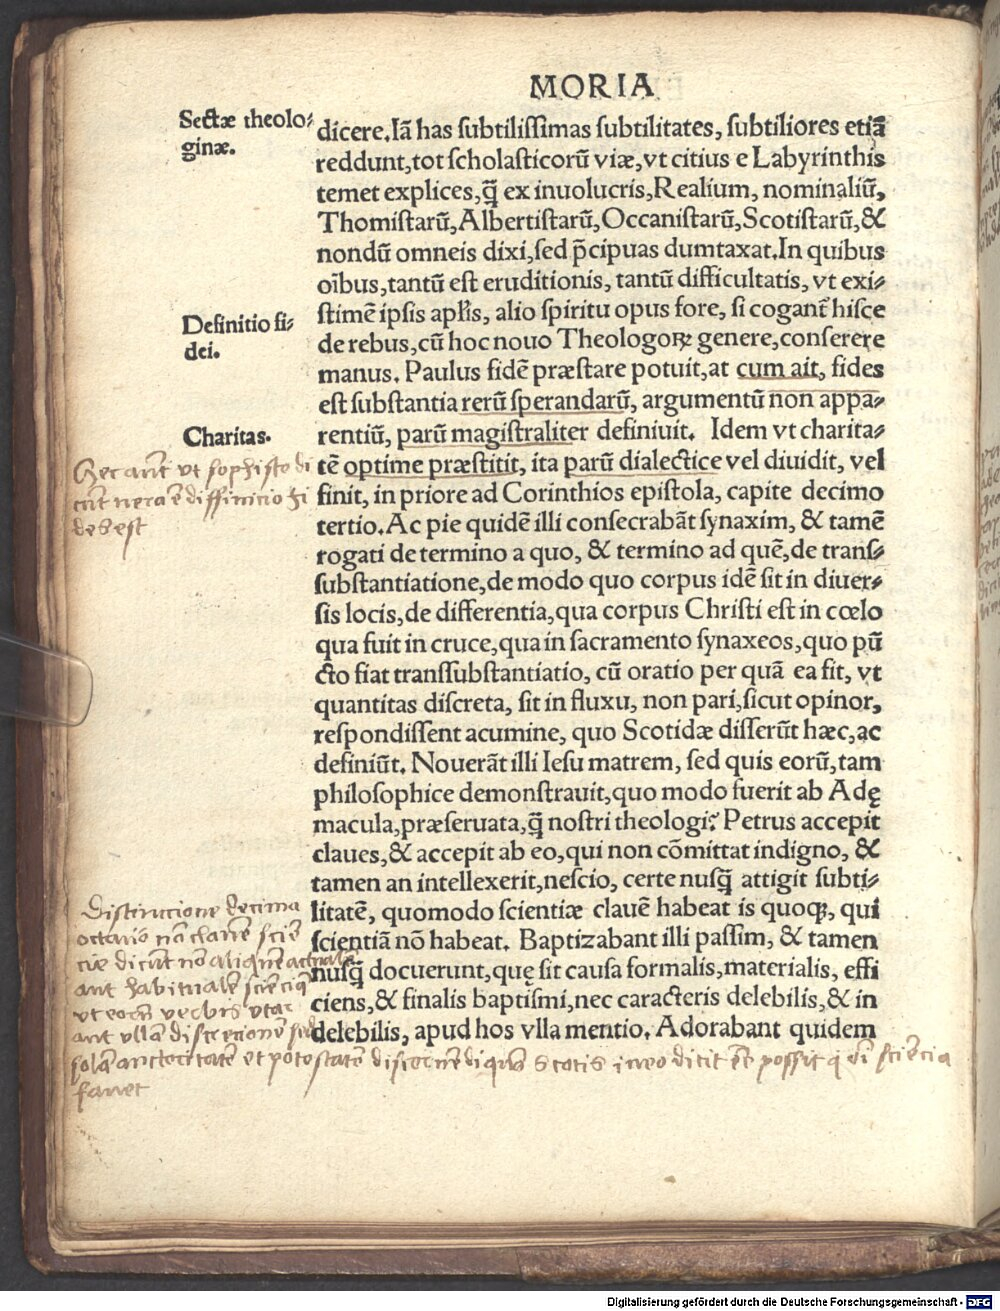 MORIA
Sectæ theolo⸗
ginæ.
dicere. Iã has ſubtiliſſimas ſubtilitates, ſubtiliores etiã
reddunt, tot ſcholaſticorũ viæ, vt citius e Labyrinthis
temet explices, q̃ ex inuolucris, Realium, nominaliũ,
Thomiſtarũ, Albertiſtarũ, Occaniſtarũ, Scotiſtarũ, &
nondũ omneis dixi, ſed p̃cipuas dumtaxat. In quibus
oĩbus, tantũ eſt eruditionis, tantũ difficultatis, vt exi⸗
ſtimẽ ipſis apłis, alio ſpiritu opus fore, ſi cogant̃ hiſce
Definitio fi⸗
dei.
de rebus, cũ hoc nouo Theologoꝝ genere, conſerere
manus. Paulus fidẽ præſtare potuit, at cum ait, fides
eſt ſubſtantia rerũ ſperandarũ, argumentũ non appa⸗
Charitas.
rentiũ, parũ magiſtraliter definiuit. Idem vt charita⸗
tẽ optime præſtitit, ita parũ dialectice vel diuidit, vel
finit, in priore ad Corinthios epiſtola, capite decimo
tertio. Ac pie quidẽ illi conſecrabãt ſynaxim, & tamẽ
rogati de termino a quo, & termino ad quẽ, de tranſ⸗
ſubſtantiatione, de modo quo corpus idẽ ſit in diuer⸗
ſis locis, de differentia, qua corpus Chriſti eſt in cœlo
qua fuit in cruce, qua in ſacramento ſynaxeos, quo pũ
cto fiat tranſſubſtantiatio, cũ oratio per quã ea fit, vt
quantitas diſcreta, ſit in fluxu, non pari, ſicut opinor,
reſpondiſſent acumine, quo Scotidæ diſſerũt hæc, ac
definiũt. Nouerãt illi Ieſu matrem, ſed quis eorũ, tam
philoſophice demonſtrauit, quo modo fuerit ab Adę
macula, præſeruata, q̃ noſtri theologi? Petrus accepit
claues, & accepit ab eo, qui non cõmittat indigno, &
tamen an intellexerit, neſcio, certe nuſq̃ attigit ſubti⸗
litatẽ, quomodo ſcientiæ clauẽ habeat is quoqꝫ, qui
ſcientiã nõ habeat. Baptizabant illi paſſim, & tamen
nuſq̃ docuerunt, quę ſit cauſa formalis, materialis, effi
ciens, & finalis baptiſmi, nec caracteris delebilis, & in
delebilis, apud hos vlla mentio. Adorabant quidem
ut sophiste di
diffinicio fi
dei est
Distinccione decima
octavo
cie dicũt nõ aliquẽ actualẽ
aut habitualẽ
aut ullã discrecionẽ sed
solã auctoritatẽ et potestatẽ
favet
Digitalisierung gefördert durch die Deutsche Forschungsgemeinschaft - DFG